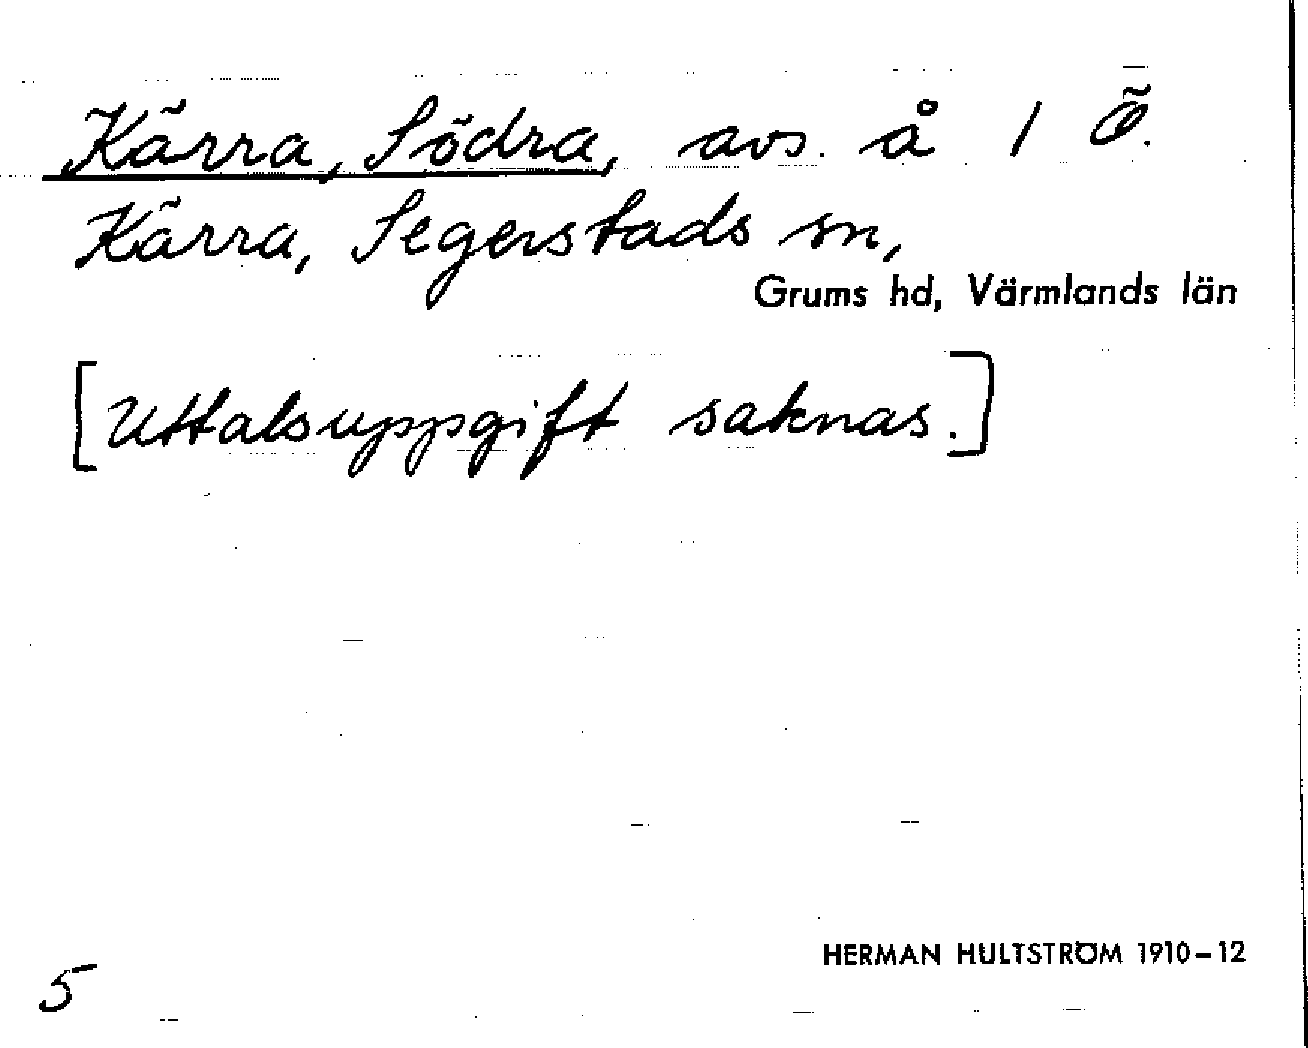 Kärra, Södra, avs. å 1 Ö.
Kärra, Segerstads sn,
Grums hd, Värmlands län
[Uttalsuppgift saknas.]
HERMAN HULTSTRÖM 1910–12
5